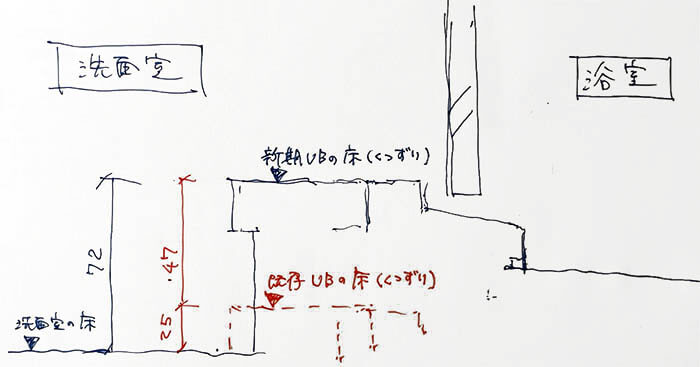 洗面室
浴室
新期UBの床(くつずり)
72
47
既存UBの床(くつずり)
25
洗面室の床